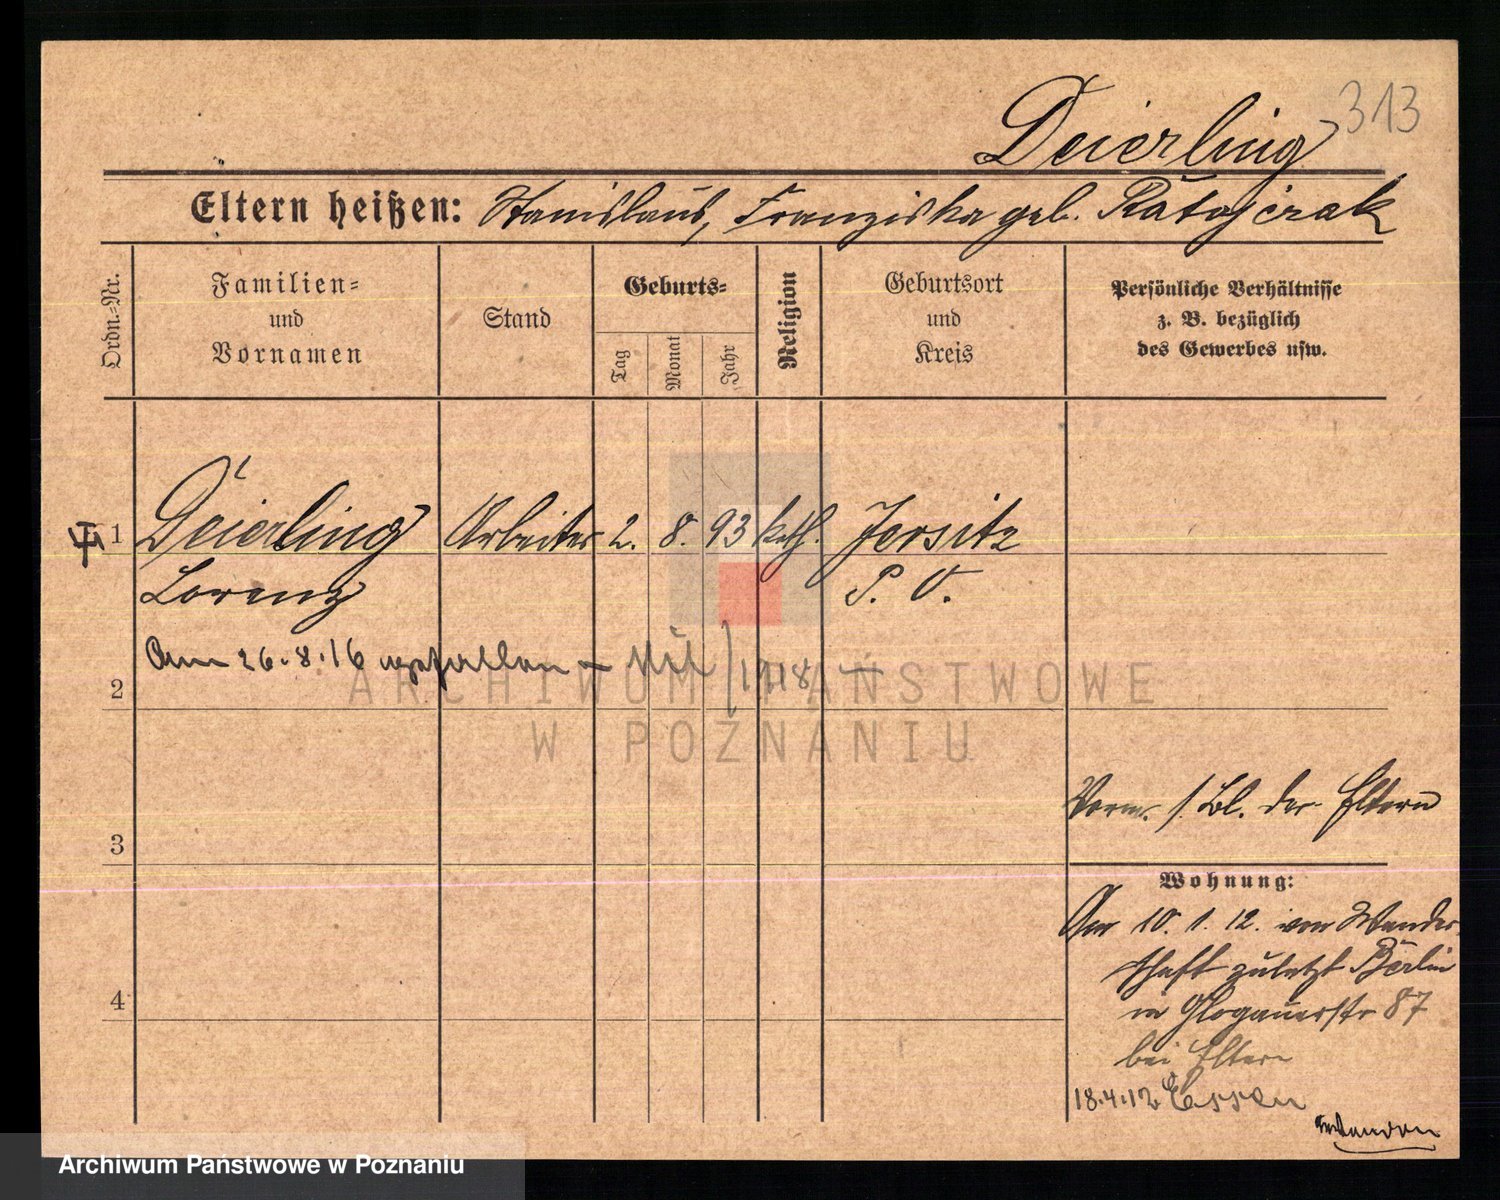 313
Deierling
Eltern heißen: Stanislaus, Franziska geb. Ratajczak
Ordn.=Nr.
Familien=
und
Vornamen
Stand
Geburts=
Tag
Monat
Jahr
Religion
Geburtsort
und
Kreis
Persönliche Verhältnisse
z. B. bezüglich
des Gewerbes usw.
1 Deierling Arbeiter 2. 8. 93 kath. Jersitz
Lorenz P. O.
Am 26.8.16 gefallen 1918
2
3
4
Vorm. s. Bl. der Eltern
Wohnung:
Am 10. 1. 12. von Wander-
schaft zuletzt Berlin
in Glogauerstr 87
bei Eltern
18.4.12 Essen
ARCHIWUM PAŃSTWOWE
W POZNANIU
Archiwum Państwowe w Poznaniu